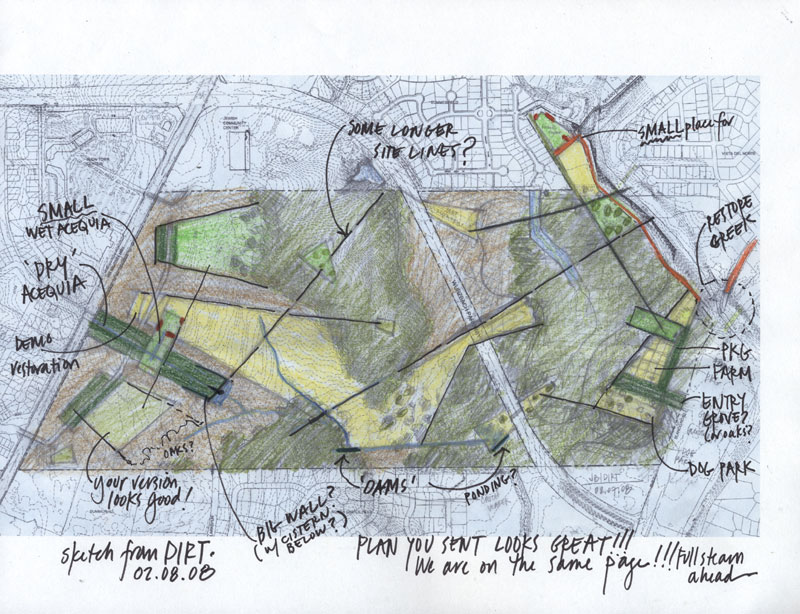 SOME LONGER
SITE LINES?
SMALL place for
RESTORE
CREEK
SMALL
WET ACEQUIA
'DRY'
ACEQUIA
DEMO
restoration
PKG
FARM
ENTRY
GROVE?
(w/oaks?
DOG PARK
OAKS?
your version,
looks good!
BIG WALL?
(w/ CISTERN
BELOW?)
'DAMS'
PONDING?
JEWISH
COMMUNITY
CENTER
sketch from DIRT.
02.08.08
PLAN YOU SENT LOOKS GREAT!!!
We are on the same page!!! Full steam
ahead